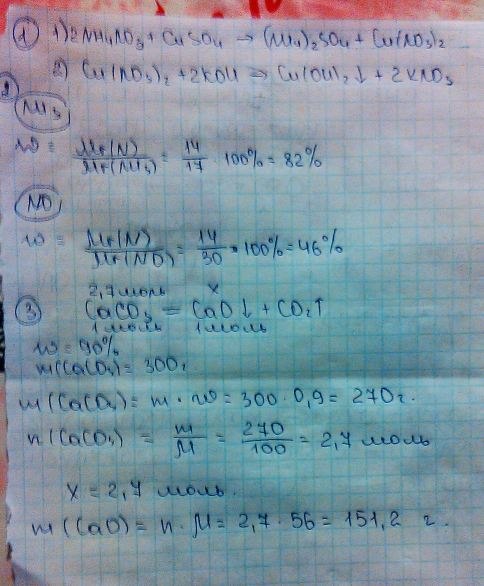 ① 1) 2NH₄NO₃ + CuSO₄ → (NH₄)₂SO₄ + Cu(NO₃)₂
2) Cu(NO₃)₂ + 2KOH → Cu(OH)₂↓ + 2KNO₃
2
NH₃
w = Mr(N)/Mr(NH₃) = 14/17 · 100% = 82%
NO
w = Mr(N)/Mr(NO) = 14/30 · 100% = 46%
2,7 моль x
③ CaCO₃ = CaO↓ + CO₂↑
1 моль 1 моль
w = 90%
m(CaCO₃) = 300г.
m(CaCO₃) = m · w = 300 · 0,9 = 270 г.
n(CaCO₃) = m/M = 270/100 = 2,7 моль
x = 2,7 моль.
m(CaO) = n · M = 2,7 · 56 = 151,2 г.